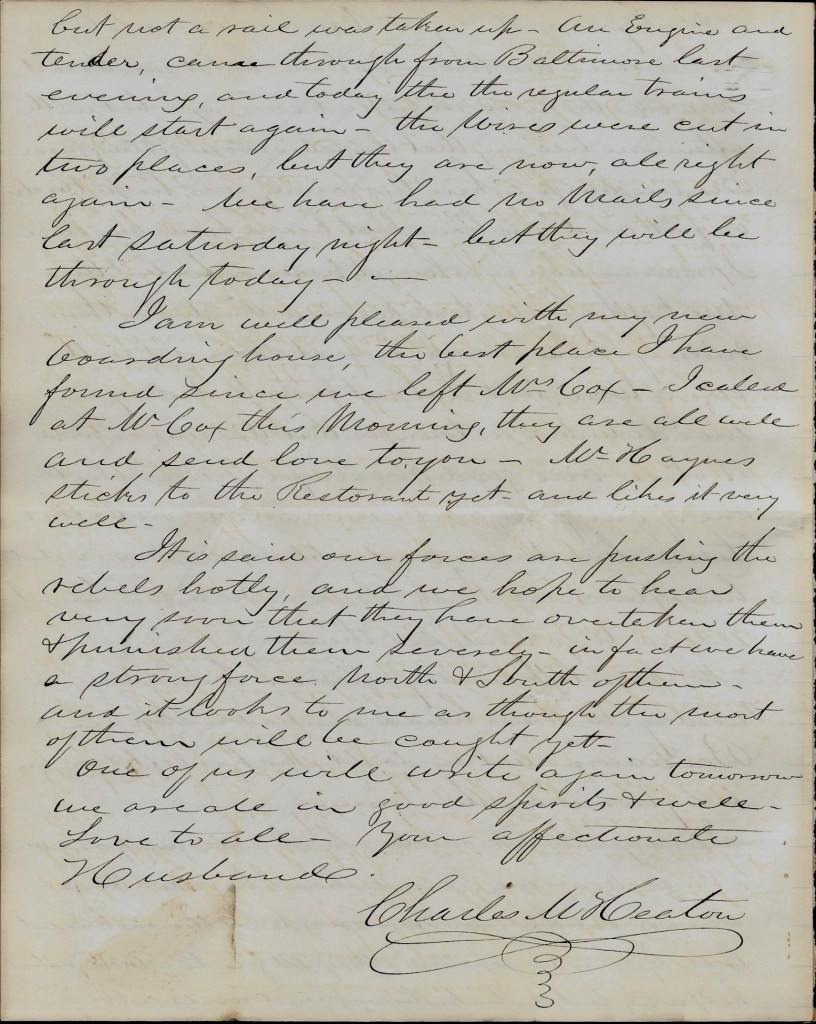 but not a rail was taken up - An Engine and
tender, came through from Baltimore last
evening, and today the the regular trains
will start again - the Wires were cut in
two places, but they are now, all right
again - We have had no Mails since
last Saturday night - but they will be
through today - -
I am well pleased with my new
boarding house, the best place I have
found since we left Mrs Cox - I called
at Mr Cox this Morning, they are all well
and send love to you - Mr Haynes
sticks to the Restorant yet - and likes it very
well -
It is said our forces are pushing the
rebels hotly, and we hope to hear
very soon that they have overtaken them
& punished them severely - in fact we have
a strong force North & South of them -
and it looks to me as though the most
of them will be caught yet -
One of us will write again tomorrow
we are all in good spirits & well -
Love to all - Your affectionate
Husband.
Charles M Heaton